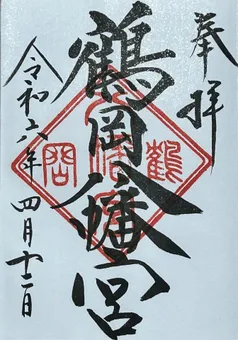 奉拝
鶴岡八幡宮
令和六年四月十二日
鶴
岡